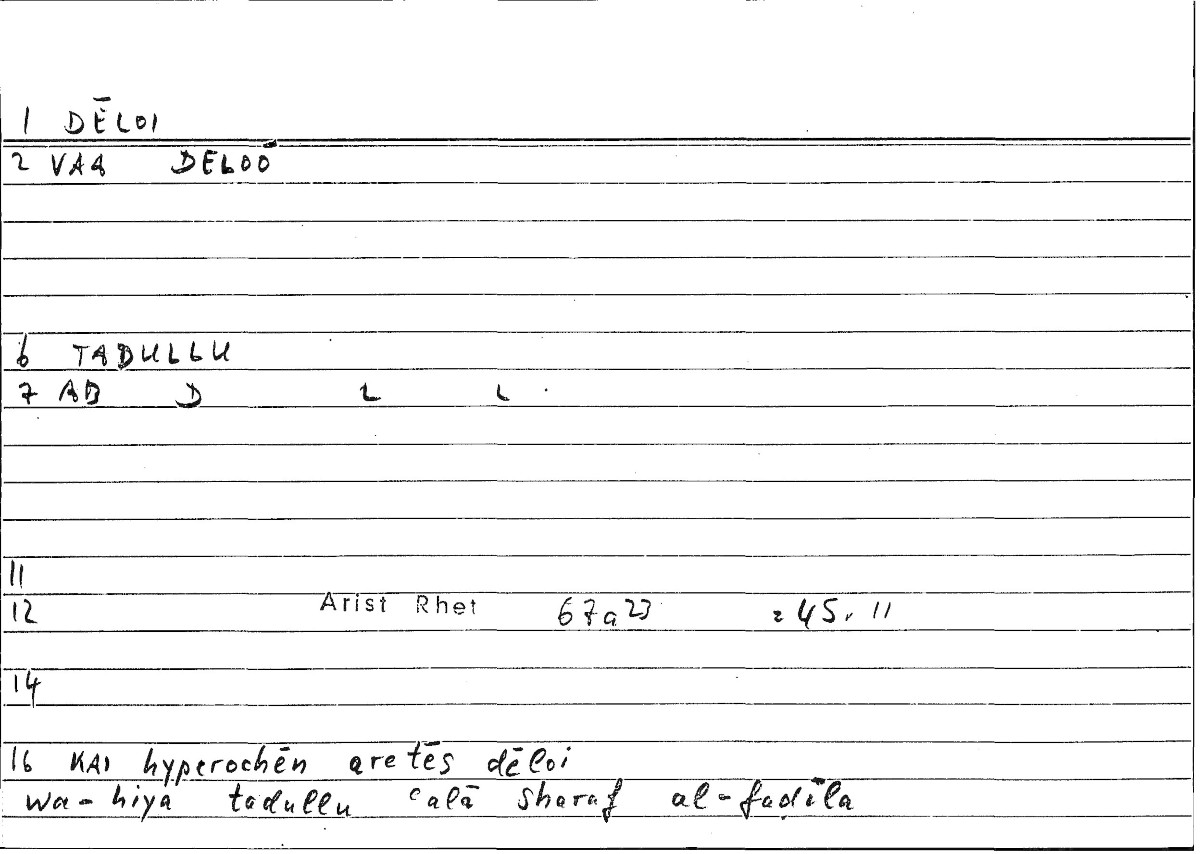 1 DĒLOI
2 VAA DELOŌ
6 TADULLU
7 AB D L L
11
12 Arist Rhet 67a23 = 45, 11
14
16 KAI hyperochēn aretēs dēloi
wa-hiya tadullu ʿalā sharaf al-faḍīla